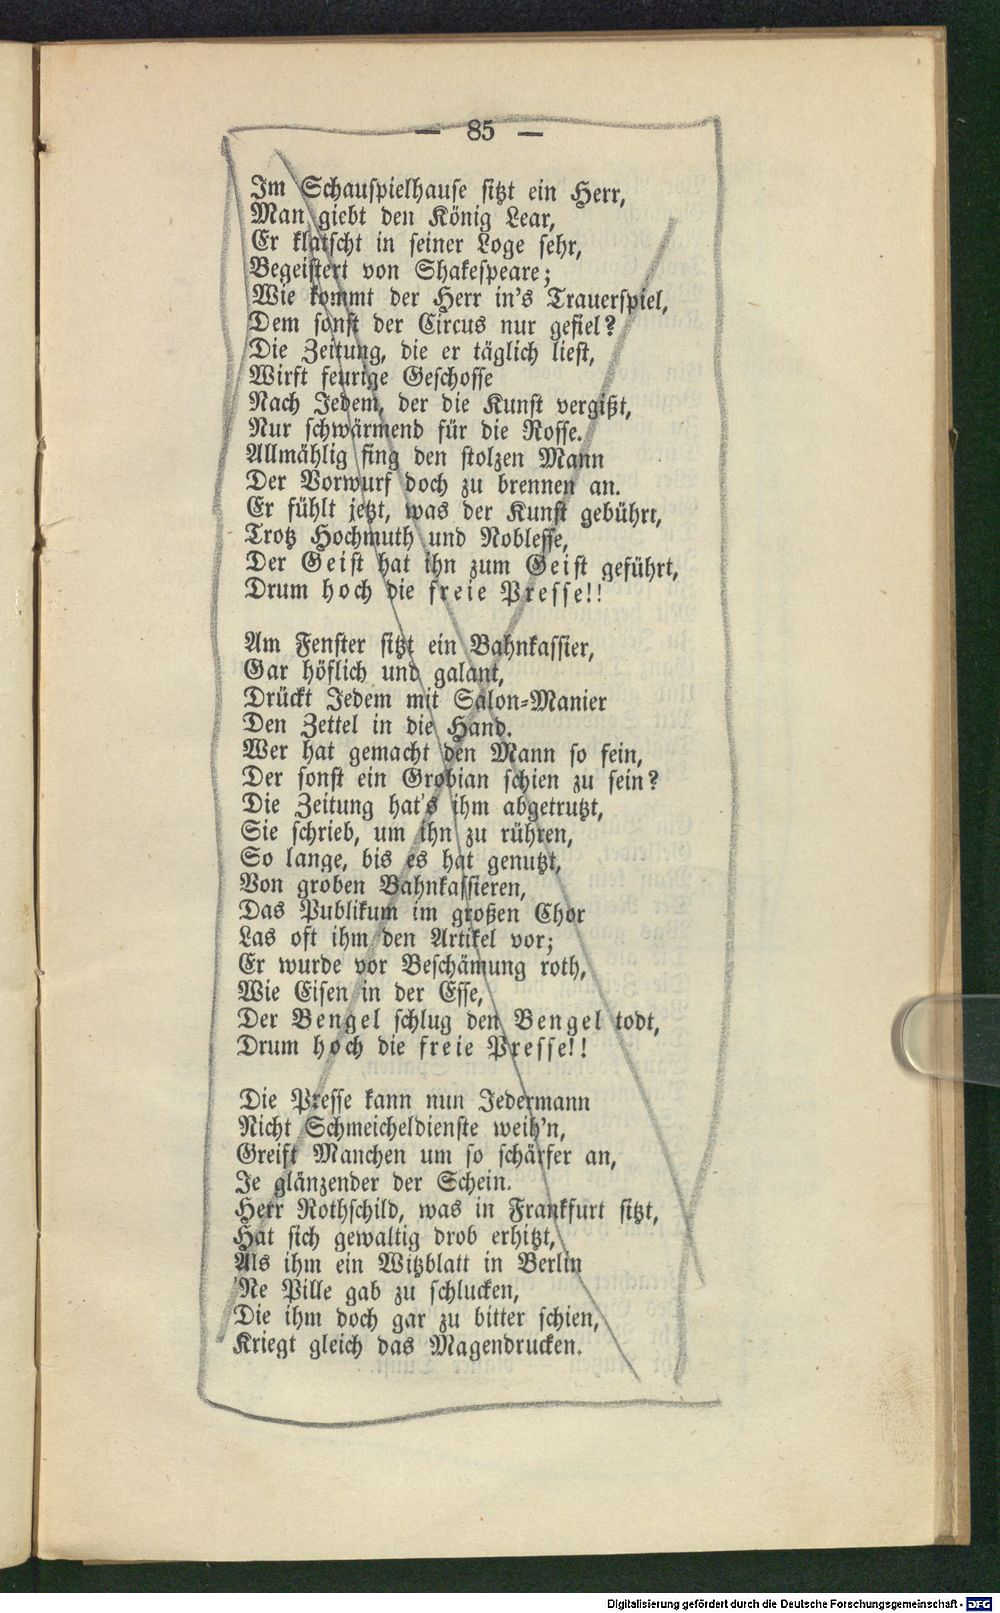 — 85 —
Im Schauspielhause sitzt ein Herr,
Man giebt den König Lear,
Er klatscht in seiner Loge sehr,
Begeistert von Shakespeare;
Wie kommt der Herr in's Trauerspiel,
Dem sonst der Circus nur gefiel?
Die Zeitung, die er täglich liest,
Wirft feurige Geschosse
Nach Jedem, der die Kunst vergißt,
Nur schwärmend für die Rosse.
Allmählig fing den stolzen Mann
Der Vorwurf doch zu brennen an.
Er fühlt jetzt, was der Kunst gebührt,
Trotz Hochmuth und Noblesse,
Der Geist hat ihn zum Geist geführt,
Drum hoch die freie Presse!!
Am Fenster sitzt ein Bahnkassier,
Gar höflich und galant,
Drückt Jedem mit Salon-Manier
Den Zettel in die Hand.
Wer hat gemacht den Mann so fein,
Der sonst ein Grobian schien zu sein?
Die Zeitung hat's ihm abgetrutzt,
Sie schrieb, um ihn zu rühren,
So lange, bis es hat genutzt,
Von groben Bahnkassieren,
Das Publikum im großen Chor
Las oft ihm den Artikel vor;
Er wurde vor Beschämung roth,
Wie Eisen in der Esse,
Der Bengel schlug den Bengel todt,
Drum hoch die freie Presse!!
Die Presse kann nun Jedermann
Nicht Schmeicheldienste weih'n,
Greift Manchen um so schärfer an,
Je glänzender der Schein.
Herr Rothschild, was in Frankfurt sitzt,
Hat sich gewaltig drob erhitzt,
Als ihm ein Witzblatt in Berlin
'Ne Pille gab zu schlucken,
Die ihm doch gar zu bitter schien,
Kriegt gleich das Magendrucken.
Digitalisierung gefördert durch die Deutsche Forschungsgemeinschaft - DFG